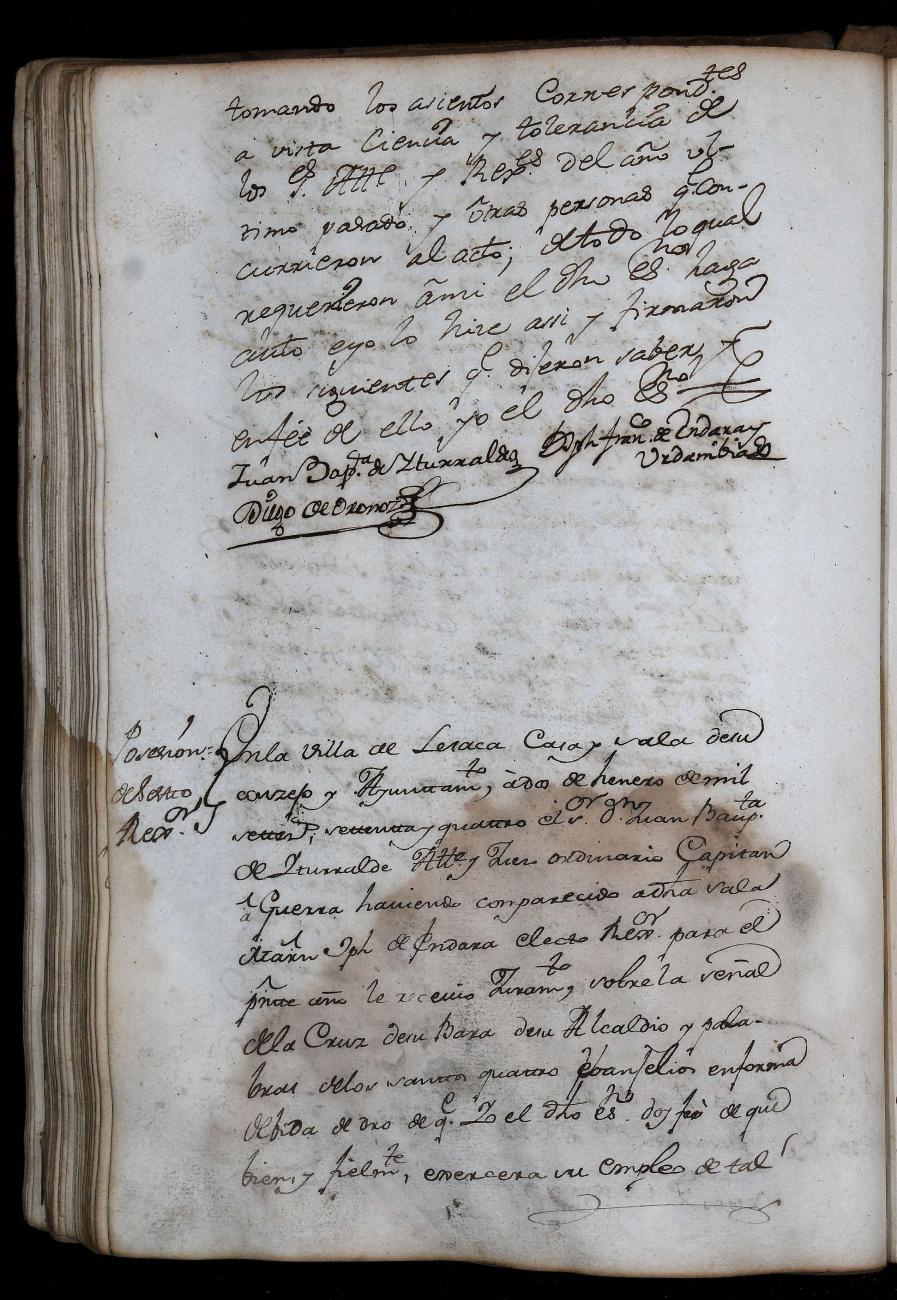 tomando los asientos Correspond.tes
a vista Ciencia y tolerancia de
los S.es Alle y Rexs.es del año ul-
timo pasado, y otras personas q.e con-
currieron al acto, de todo lo qual
requerieron a mi el dho es.no haga
auto e yo lo hize assi y firmaron
los siguientes q.e dijeron saber, y
en fee de ello yo el dho es.no
Juan Bap.ta de Yturralde Jph fran.co de Endara y
Urdambidea
Diego de Oronoz
Posesion
de electo
Rexor.
En la Villa de Lesaca Casa y sala de su
conzejo y Ayuntam.to, à dos de henero de mil
settez.s settenta y quattro el S.or D.n Juan Baup.ta
de Yturralde Alle y Juez ordinario Capitan
a Guerra haviendo comparecido a dha sala
Jph de Endara electo Rexor para el
pnte año le recivio Juram.to, sobre la señal
de la Cruz de su Bara de su Alcaldio y pala-
bras de los santos quattro Evanjelios en forma
debida de dro de q.e Yo el dho es.no doy fee de que
bien, y fielm.te, exercera su empleo de tal